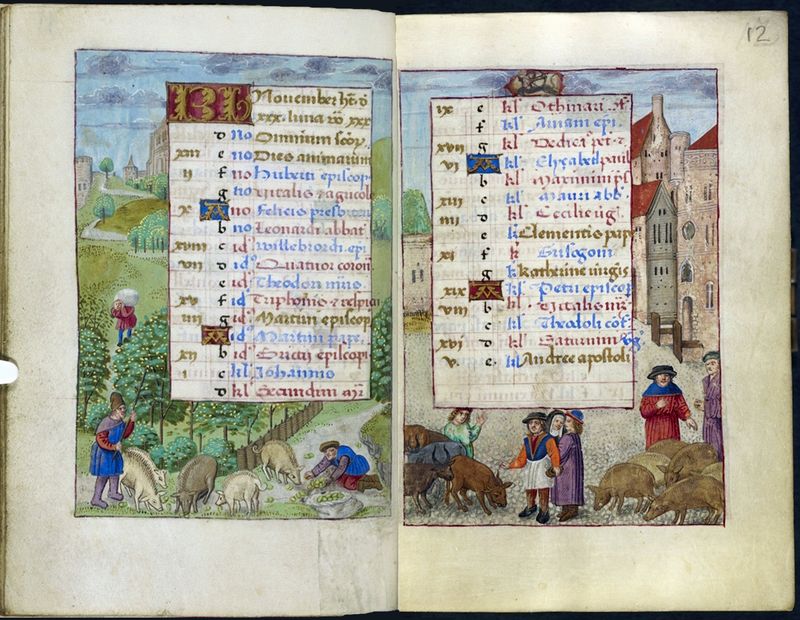 KL November hʒ d
xxx. luna vo xxx
d no Omnium scōp.
xiii e no Dies animarum
ii f no Huberti episcop
g no Vitalis & agricol
x A no Felicis presbiteri
b no Leonardi abbat
xviii c id Willebrordi. epi
vii d id Quatuor coron
e id Theodori
xv f id Triphonis & respicii
iiii g id Martini episcop
A id Martini pape.
xii b id Briccii episcopi
i c kl Johannis
d kl Secundini
12
ix e kl Othmari.
f kl Aniani epi.
xvii g kl Dedica
vi A kl Elyzabeth
b kl Maximini
xiii c kl Mauri abb
iii d kl Cecilie vg
e kl Clementis pape
xi f kl Grisogoni
g kl Katherine virgis
xix A kl Petri episcop
viii b kl Vitalis
c kl Theodoli
xvi d kl Saturnini
v. e. kl Andree apostoli